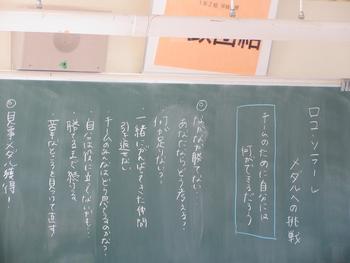 ロコ・ソラーレ
メダルへの挑戦
チームのために自分には
何ができるだろう
なかなか勝てない…
あなたならどう考える？
何が足りない？
・一緒にがんばってきた仲間
引き返せない
・チームのみんなはどう思ってるのかな？
・自分は役に立てないかも…
・勝てるまで続ける
・苦手なところを見つけて直す
見事メダル獲得！